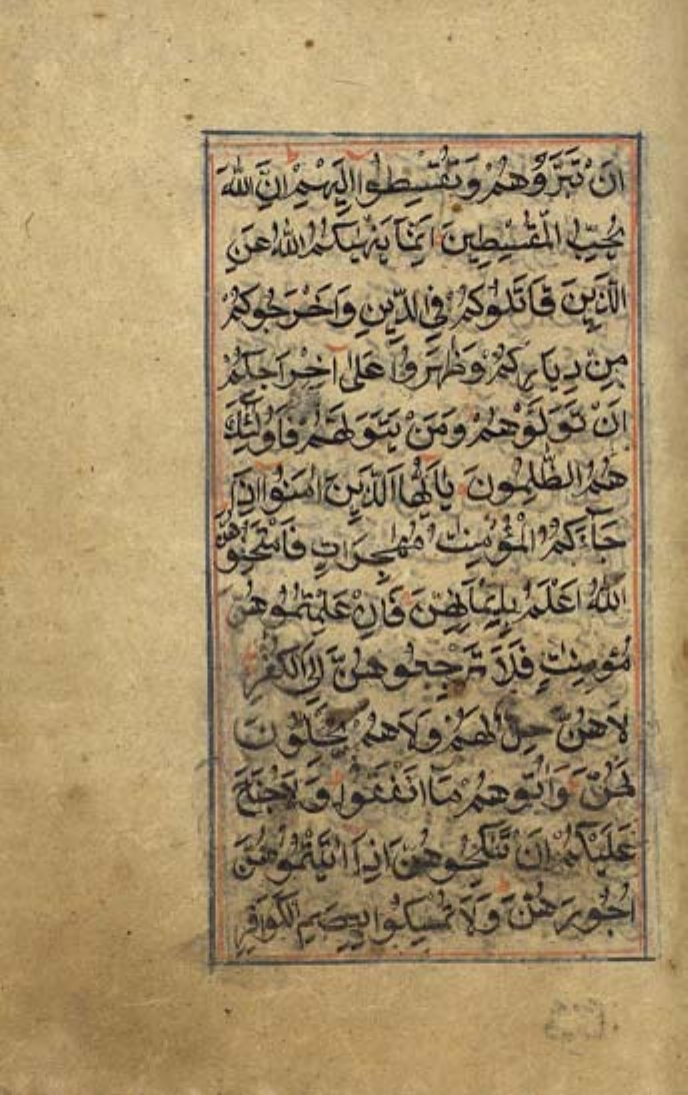 اَنْ تَبَرُّوْهُمْ وَتُقْسِطُوا اِلَيْهِمْ اِنَّ اللهَ
يُحِبُّ الْمُقْسِطِينَ اِنَّمَا يَنْهٰيكُمُ اللهُ عَنِ
الَّذِينَ قَاتَلُوكُمْ فِي الدِّينِ وَاَخْرَجُوكُمْ
مِنْ دِيَارِكُمْ وَظَاهَرُوا عَلٰى اِخْرَاجِكُمْ
اَنْ تَوَلَّوْهُمْ وَمَنْ يَتَوَلَّهُمْ فَاُولٰئِكَ
هُمُ الظّٰلِمُونَ يٰاَيُّهَا الَّذِينَ اٰمَنُوا اِذَا
جَآءَكُمُ الْمُؤْمِنٰتُ مُهٰجِرَاتٍ فَامْتَحِنُوهُنَّ
اللهُ اَعْلَمُ بِاِيمَانِهِنَّ فَاِنْ عَلِمْتُمُوهُنَّ
مُؤْمِنٰتٍ فَلَا تَرْجِعُوهُنَّ اِلَى الْكُفَّارِ
لَاهُنَّ حِلٌّ لَهُمْ وَلَاهُمْ يَحِلُّونَ
لَهُنَّ وَاٰتُوهُمْ مَا اَنْفَقُوا وَلَاجُنَاحَ
عَلَيْكُمْ اَنْ تَنْكِحُوهُنَّ اِذَا اٰتَيْتُمُوهُنَّ
اُجُورَهُنَّ وَلَا تُمْسِكُوا بِعِصَمِ الْكَوَافِرِ